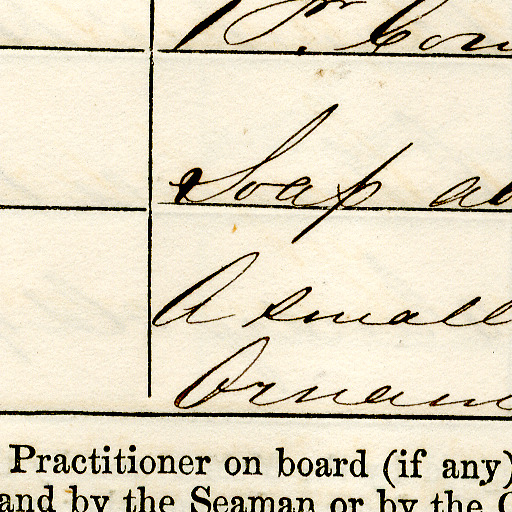 Soap
A small
Practitioner on board (if any)
and by the Seaman or by the